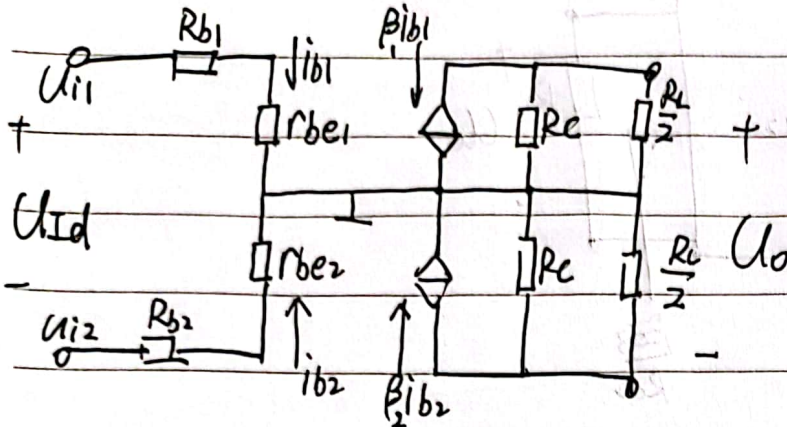 Rb1
ib1
β1ib1
Ui1
+
rbe1
Rc
RL/2
+
UId
Uo
-
rbe2
Rc
RL/2
ui2
Rb2
ib2
β2ib2
-